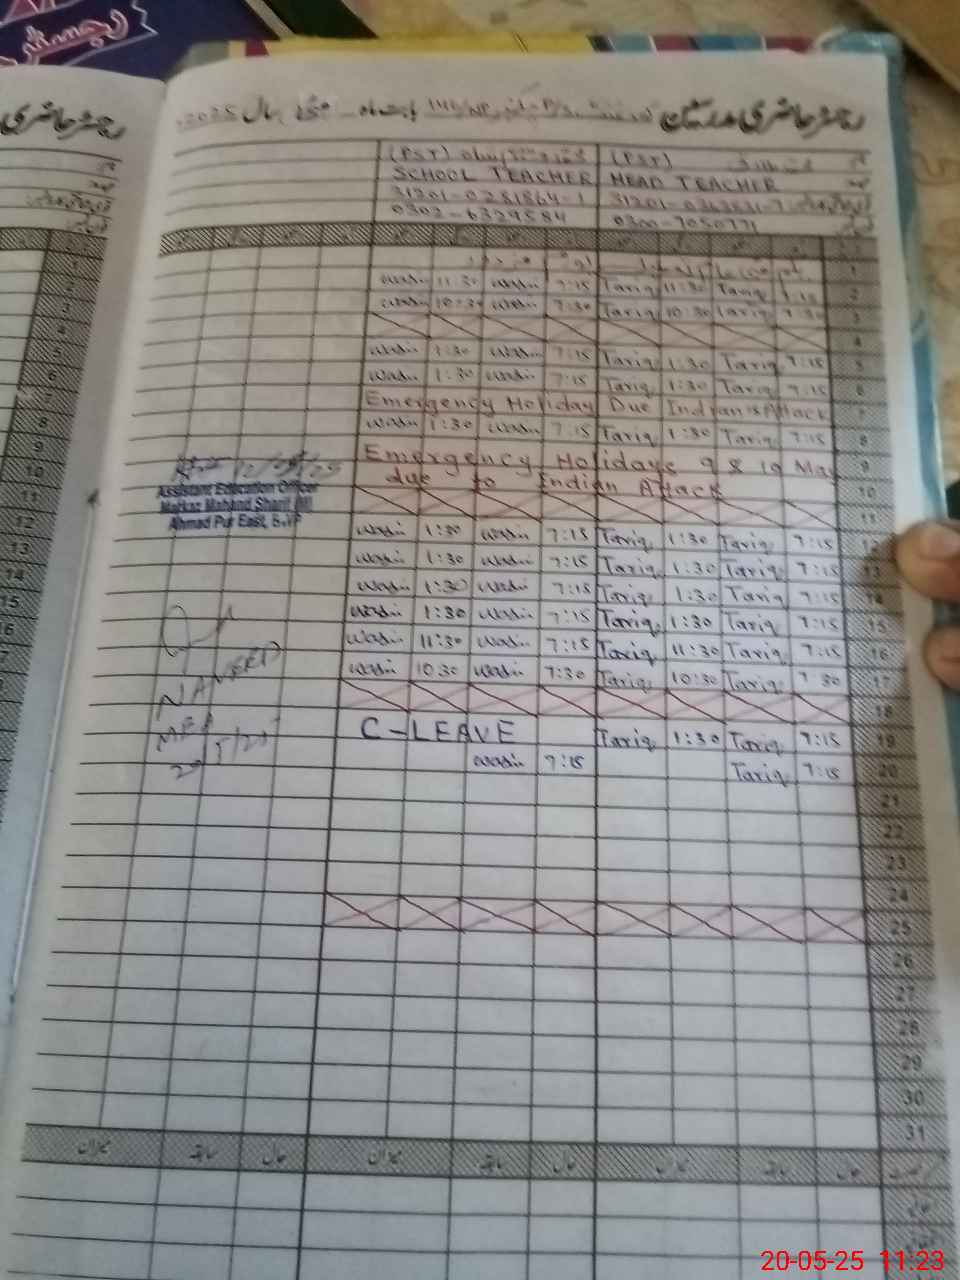 رجسٹر حاضری مدرسین بابت ماہ مئی سال 2025
(PST) (PST)
SCHOOL TEACHER HEAD TEACHER
31201-0281864-1
0302-6329584 0300-7050771
1
wasim 11:30 wasim 7:15 Tariq 11:30 Tariq 7:15 2
wasim 10:30 wasim 7:30 Tariq 10:30 Tariq 7:30 3
4
wasim 1:30 wasim 7:15 Tariq 1:30 Tariq 7:15 5
wasim 1:30 wasim 7:15 Tariq 1:30 Tariq 7:15 6
Emergency Holiday Due Indian Attack 7
wasim 1:30 wasim 7:15 Tariq 1:30 Tariq 7:15 8
Emergency Holidays 9 & 10 May 9
due to Indian Attack 10
12/05/25
Assistant Education Officer
Markaz Mahand Sharif (M)
Ahmad Pur East, BWP
11
wasim 1:30 wasim 7:15 Tariq 1:30 Tariq 7:15 12
wasim 1:30 wasim 7:15 Tariq 1:30 Tariq 7:15 13
wasim 1:30 wasim 7:15 Tariq 1:30 Tariq 7:15 14
wasim 1:30 wasim 7:15 Tariq 1:30 Tariq 7:15 15
wasim 11:30 wasim 7:15 Tariq 11:30 Tariq 7:15 16
wasim 10:30 wasim 7:30 Tariq 10:30 Tariq 7:30 17
NAVEED
MEA
20/5/25
18
C-LEAVE Tariq 1:30 Tariq 7:15 19
wasim 7:15 Tariq 7:15 20
21
22
23
24
25
26
27
28
29
30
31
میزان سابقہ حال میزان سابقہ حال میزان سابقہ حال
20-05-25 11:23